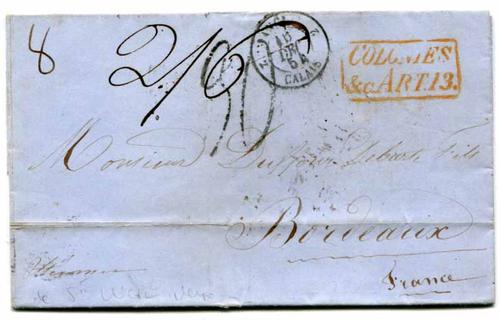 8
2/6
30
2
16
DEC
54
CALAIS
COLONIES
&c ART.13.
Monsieur Dufour Fils
Bordeaux
France